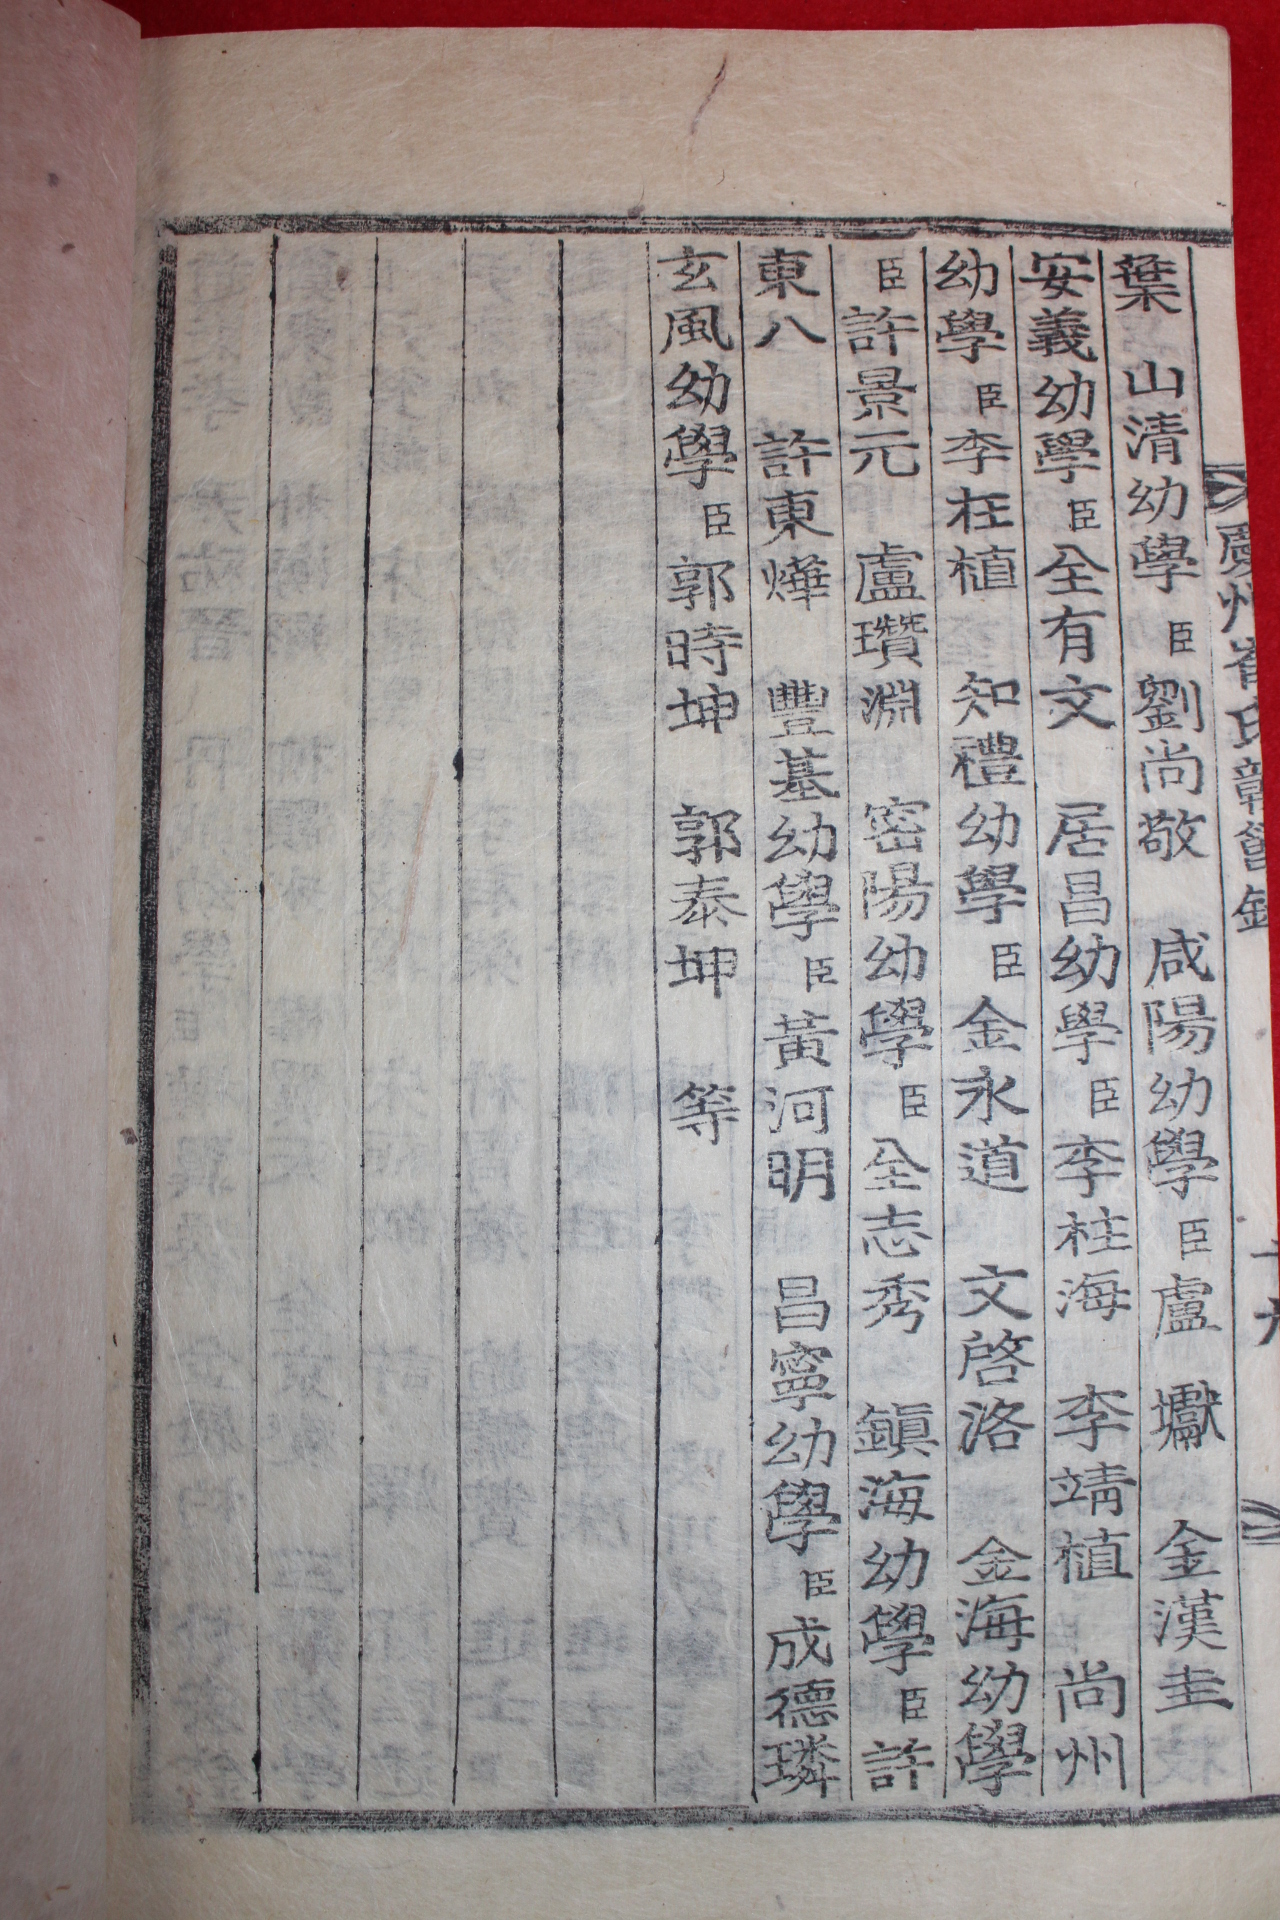 慶州崔氏韓舊錄
十九
葉 山清幼學臣劉尚敬 咸陽幼學臣盧 金漢圭
安義幼學臣全有文 居昌幼學臣李柱海 李靖植 尚州
幼學臣李枉植 知禮幼學臣金永道 文啓洛 金海幼學
臣許景元 盧瓚淵 密陽幼學臣全志秀 鎭海幼學臣許
東八 許東燁 豐基幼學臣黃河明 昌寧幼學臣成德璘
玄風幼學臣郭時坤 郭泰坤 等